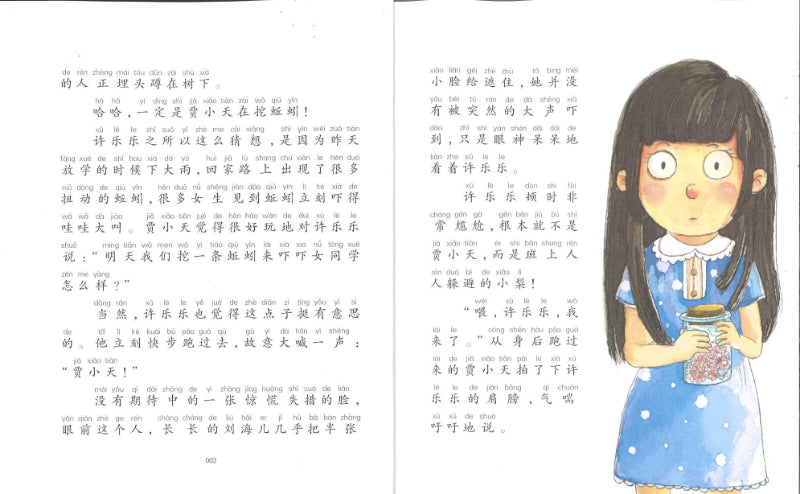 de rén zhèng mái tóu dūn zài shù xià
的人正埋头蹲在树下。
hā hā yí dìng shì jiǎ xiǎo tiān zài wā qiū yǐn
哈哈，一定是贾小天在挖蚯蚓！
xǔ lè le zhī suǒ yǐ zhè me cāi xiǎng shì yīn wèi zuó tiān
许乐乐之所以这么猜想，是因为昨天
fàng xué de shí hou xià dà yǔ huí jiā lù shang chū xiàn le hěn duō
放学的时候下大雨，回家路上出现了很多
niǔ dòng de qiū yǐn hěn duō nǚ shēng jiàn dào qiū yǐn lì kè xià de
扭动的蚯蚓，很多女生见到蚯蚓立刻吓得
wā wā dà jiào jiǎ xiǎo tiān jué de hěn hǎo wán de duì xǔ lè le
哇哇大叫。贾小天觉得很好玩地对许乐乐
shuō míng tiān wǒ men wā yì tiáo qiū yǐn lái xià xià nǚ tóng xué
说：“明天我们挖一条蚯蚓来吓吓女同学
zěn me yàng
怎么样？”
dāng rán xǔ lè le yě jué de zhè diǎn zi tǐng yǒu yì si
当然，许乐乐也觉得这点子挺有意思
de tā lì kè kuài bù pǎo guò qù gù yì dà hǎn yì shēng
的。他立刻快步跑过去，故意大喊一声：
jiǎ xiǎo tiān
“贾小天！”
méi yǒu qī dài zhōng de yì zhāng jīng huāng shī cuò de liǎn
没有期待中的一张惊慌失措的脸，
yǎn qián zhè ge rén cháng cháng de liú hǎi ér jī hū bǎ bàn zhāng
眼前这个人，长长的刘海儿几乎把半张
002
xiǎo liǎn gěi zhē zhù tā bìng méi
小脸给遮住，她并没
yǒu bèi tū rán de dà shēng xià
有被突然的大声吓
dào zhǐ shì yǎn shén dāi dāi de
到，只是眼神呆呆地
kàn zhe xǔ lè le
看着许乐乐。
xǔ lè le dùn shí fēi
许乐乐顿时非
cháng gān gà gēn běn jiù bú shì
常尴尬，根本就不是
jiǎ xiǎo tiān ér shì bān shang rén
贾小天，而是班上人
rén duǒ bì de xiǎo lí
人躲避的小梨！
wèi xǔ lè le wǒ
“喂，许乐乐，我
lái le cóng shēn hòu pǎo guò
来了。”从身后跑过
lái de jiǎ xiǎo tiān pāi le xià xǔ
来的贾小天拍了下许
lè le de jiān bǎng qì chuǎn
乐乐的肩膀，气喘
xū xū de shuō
吁吁地说。